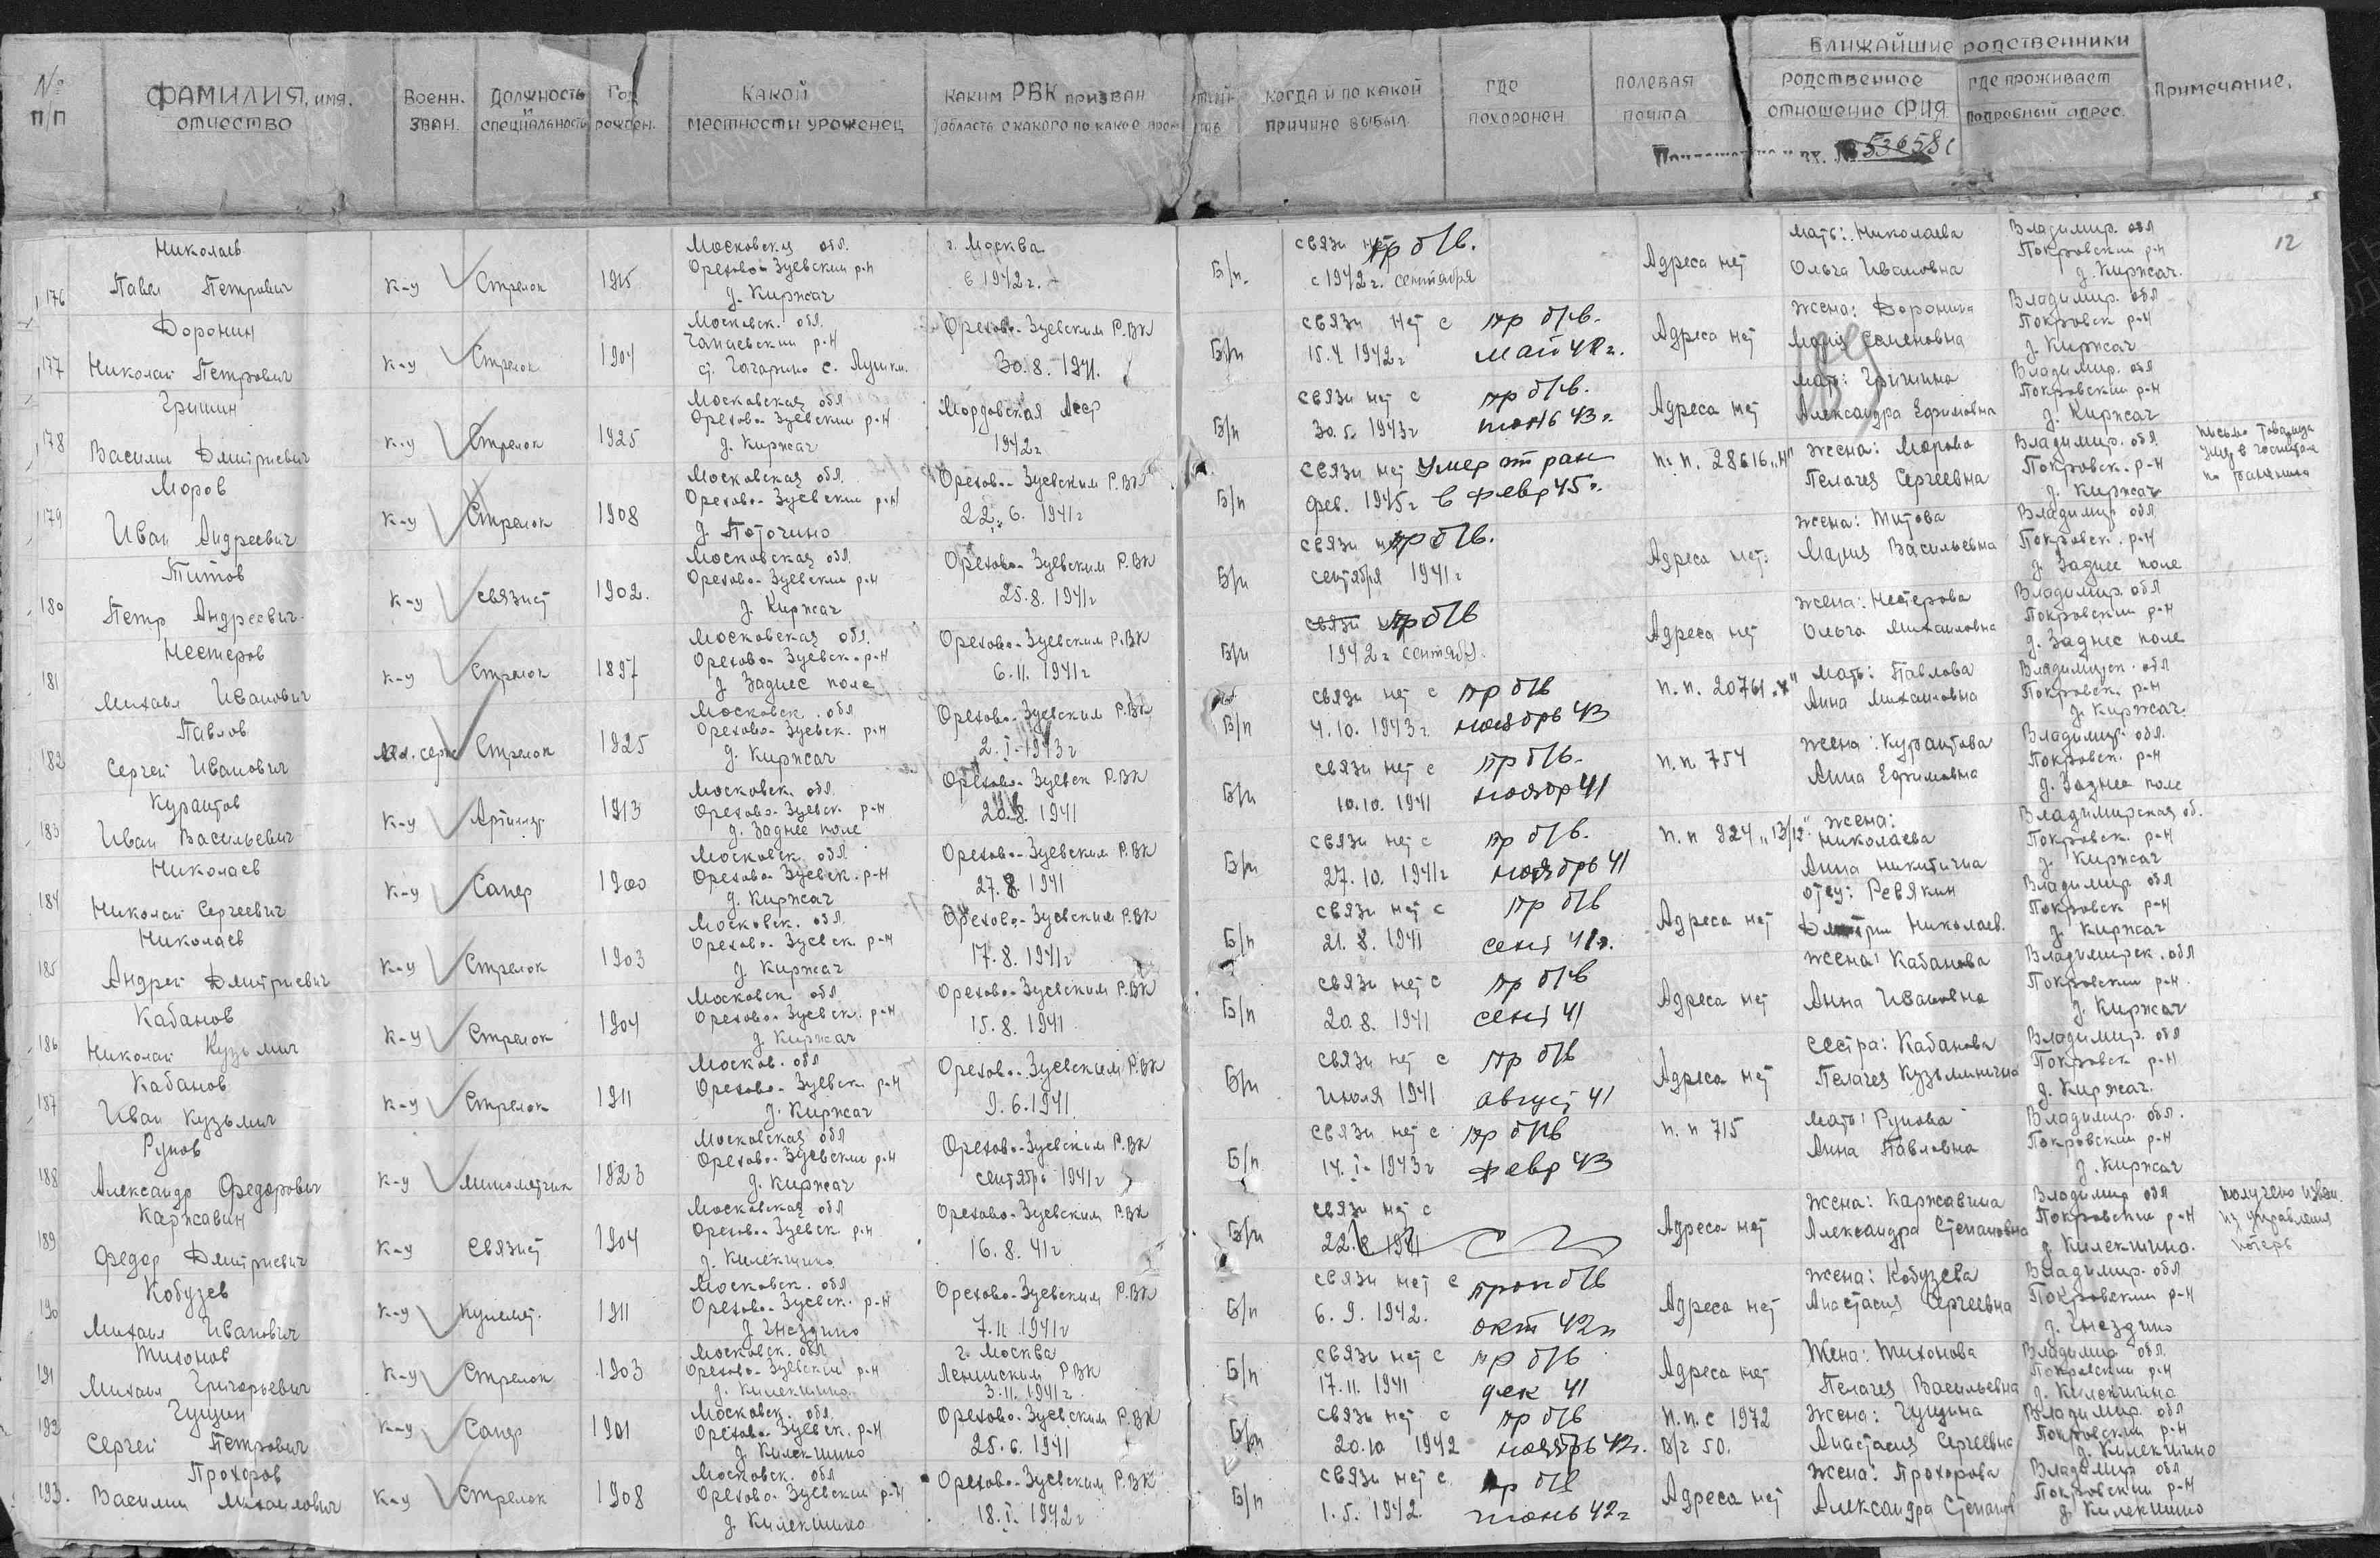 № п/п
ФАМИЛИЯ, имя, отчество
Военн. зван.
Должность и специальность
Год рожден.
Какой местности уроженец
Каким РВК призван
Когда и по какой причине выбыл
Где похоронен
Полевая почта
Ближайшие родственники
Родственное отношение ФИЯ
Где проживает подробный адрес.
Примечание.
53658с
12
176 Николаев Павел Петрович к-у Стрелок 1915 Московская обл. Орехово-Зуевский р-н д. Киржач г. Москва в 1942 г. Б/п. связи нет с 1942 г. сентября пр б/в. Адреса нет Мать: Николаева Ольга Ивановна Владимир. обл Покровский р-н д. Киржач.
177 Доронин Николай Петрович к-у Стрелок 1904 Московск. обл. с. Орехово-Зуевским Р.ВК 30.8.1941. Б/п связи нет с 1942 г пр б/в. май 42 г. Адреса нет Жена: Доронина Мария Семеновна Владимир. обл Покровск р-н д. Киржач
178 Гришин Василий Дмитриевич к-у Стрелок 1925 Московская обл Орехово-Зуевский р-н д. Киржач Мордовская Асср 1942 г Б/п связи нет с 30.5. 1943 г пр б/в. июнь 43 г. Адреса нет Мать: Гришина Александра Ефимовна Владимир. обл Покровский р-н д. Киржач
179 Моров Иван Андреевич к-у Стрелок 1908 Московская обл. Орехово-Зуевский р-н д. Поточино Орехово-Зуевским Р.ВК 22.6.1941 г Б/п связи нет фев. 1945 г Умер от ран в февр 45 г. п.п. 28616 „Н" Жена: Морова Пелагея Сергеевна Владимир. обл Покровск. р-н д. Киржач письмо товарища
180 Титов Петр Андреевич к-у связист 1902. Московская обл. Орехово-Зуевский р-н д. Киржач Орехово-Зуевским Р.ВК 25.8.1941 г Б/п связи нет сентября 1941 г пр б/в. Адреса нет. Жена: Титова Мария Васильевна Владимир обл Покровск. р-н д. Заднее поле
181 Нестеров Михаил Иванович к-у Стрелок 1897 Московская обл. Орехово-Зуевск. р-н д Заднее поле Орехово-Зуевским Р.ВК 6.11.1941 г Б/п связи нет 1942 г сентябр. пр б/в Адреса нет Жена: Нестерова Ольга Михайловна Владимир. обл Покровский р-н д. Заднее поле
182 Павлов Сергей Иванович Мл. серж Стрелок 1925 Московск. обл Орехово-Зуевск. р-н д. Киржач Орехово-Зуевским Р.ВК 2.I-1943 г Б/п связи нет с 4.10.1943 г. пр б/в ноябрь 43 п.п. 20761 „Х" Мать: Павлова Анна Михайловна Владимирск. обл Покровск. р-н д. Киржач.
183 Курантов Иван Васильевич к-у Артиллер. 1913 Московск. обл. Орехово-Зуевск р-н д. Заднее поле Орехово-Зуевск Р.ВК 20.8.1941 Б/п связи нет с 10.10.1941 пр б/в. ноябр 41 п.п 754 Жена: Курантова Анна Ефимовна Владимир. обл. Покровск. р-н д. Заднее поле
184 Николаев Николай Сергеевич к-у Сапер 1900 Московск. обл. Орехово-Зуевск. р-н д. Киржач Орехово-Зуевским Р.ВК 27.8.1941 Б/п связи нет с 27.10.1941 г пр б/в. ноябрь 41 п.п 924 „13/12" Жена: Николаева Анна Никитична Владимирская об. Покровск. р-н д. Киржач
185 Николаев Андрей Дмитриевич к-у Стрелок 1903 Московск. обл Орехово-Зуевск р-н д. Киржач Орехово-Зуевским Р.ВК 17.8.1941 г Б/п связи нет с 21.8.1941 пр б/в сент 41 г. Адреса нет отец: Ревякин Дмитрий Николаев. Владимир обл Покровск р-н д. Киржач
186 Кабанов Николай Кузьмич к-у Стрелок 1904 Московск. обл Орехово-Зуевск. р-н д. Киржач Орехово-Зуевским Р.ВК 15.8.1941 Б/п связи нет с 20.8.1941 пр б/в сент 41 Адреса нет Жена: Кабанова Анна Ивановна Владимирск. обл Покровский р-н. д. Киржач
187 Кабанов Иван Кузьмич к-у Стрелок 1911 Москов. обл Орехово-Зуевск р-н д. Киржач Орехово-Зуевским Р.ВК 9.6.1941 Б/п связи нет с июля 1941 пр б/в август 41 Адреса нет сестра: Кабанова Пелагея Кузьминична Владимир. обл Покровск р-н д. Киржач.
188 Рунов Александр Федорович к-у минометчик 1923 Московская обл Орехово-Зуевский р-н д. Киржач Орехово-Зуевским Р.ВК сентябрь 1941 г Б/п связи нет с 14.I-1943 г пр б/в февр 43 п.п 715 Мать: Рунова Анна Павловна Владимир. обл. Покровский р-н д. Киржач
189 Каржавин Федор Дмитриевич к-у связист 1904 Московская обл Орехово-Зуевск р-н д. Килекшино Орехово-Зуевским Р.ВК 16.8.41 г Б/п связи нет с 22.8.1941 Адреса нет Жена: Каржавина Александра Степановна Владимир обл Покровский р-н д. Килекшино. получено извещ. из управления потерь
190 Кобузев Михаил Иванович к-у пулемет. 1911 Московск. обл. Орехово-Зуевск. р-н д Гнездино Орехово-Зуевским Р.ВК 7.11.1941 г Б/п связи нет с 6.9.1942. проп б/в окт 42 г Адреса нет Жена: Кобузева Анастасия Сергеевна Владимир. обл Покровский р-н д. Гнездино
191 Тихонов Михаил Григорьевич к-у Стрелок 1903 Московск. обл Орехово-Зуевский р-н д. Килекшино г. Москва Ленинским РВК 3.11.1941 г. Б/п связи нет с 17.11.1941 пр б/в дек 41 Адреса нет Жена: Тихонова Пелагея Васильевна Владимир обл. Покровский р-н д. Килекшино
192 Гущин Сергей Петрович к-у Сапер 1901 Московск. обл. Орехово-Зуевск. р-н д. Килекшино Орехово-Зуевским Р.ВК 25.6.1941 Б/п связи нет с 20.10 1942 пр б/в ноябрь 42 г. п.п. с 1972 в/ч 50. Жена: Гущина Анастасия Сергеевна Владимир. обл Покровский р-н д. Килекшино
193. Прохоров Василий Михайлович к-у Стрелок 1908 Московск. обл Орехово-Зуевский р-н д. Килекшино Орехово-Зуевским Р.ВК 18.I.1942 г Б/п связи нет с 1.5.1942. пр б/в июнь 42 г Адреса нет Жена: Прохорова Александра Степан Владимир обл Покровский р-н д. Килекшино